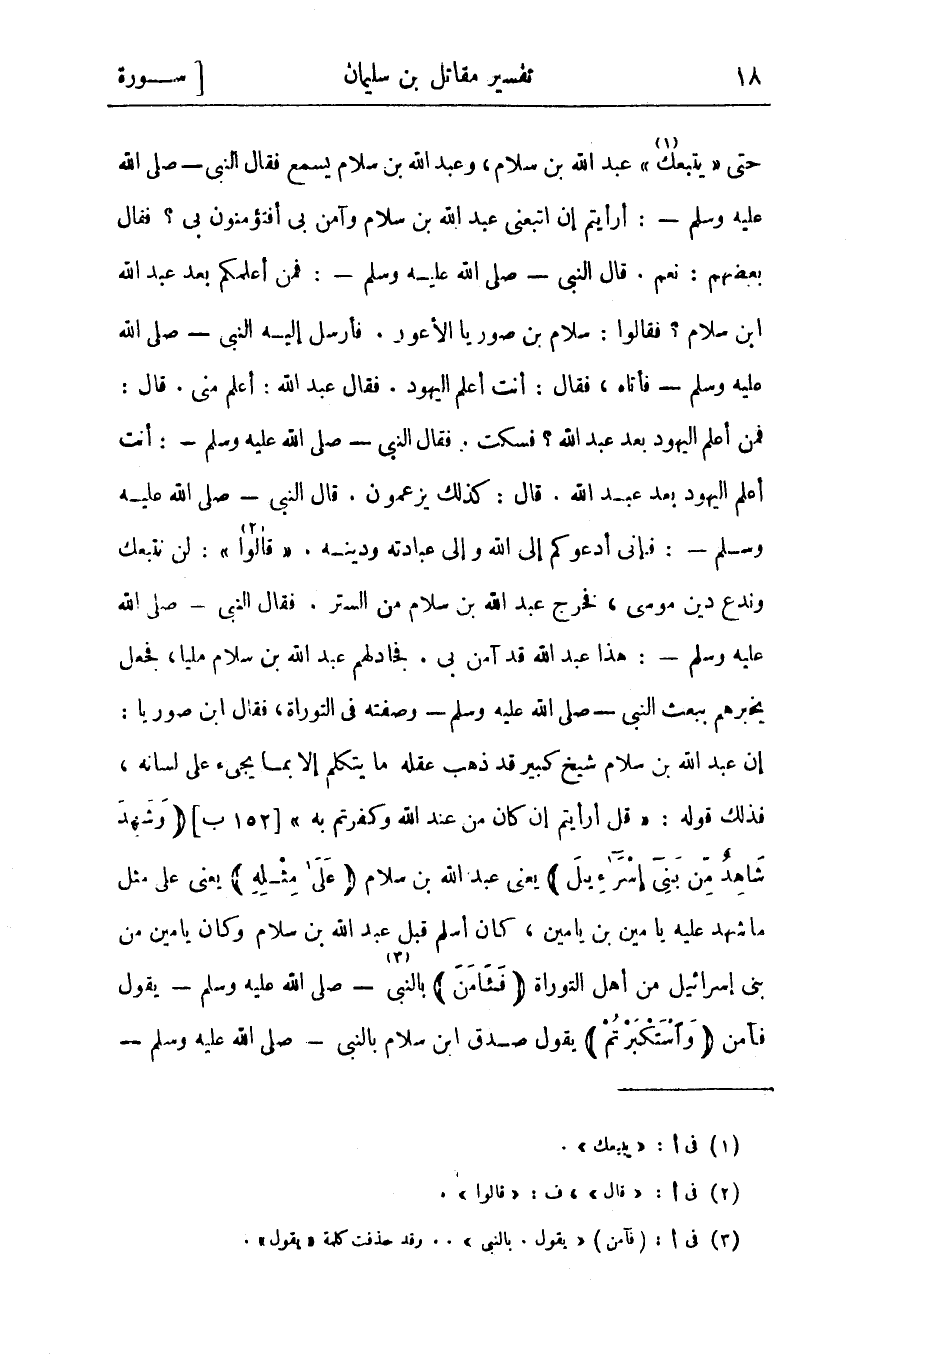 ١٨ تفسير مقاتل بن سليمان [ ســورة
حتى « يتبعك(١) » عبد الله بن سلام، وعبد الله بن سلام يسمع فقال النبى — صلى الله
عليه وسلم — : أرأيتم إن اتبعنى عبد الله بن سلام وآمن بى أفتؤمنون بى ؟ فقال
بعضهم : نعم . قال النبى — صلى الله عليـه وسلم — : فمن أعلمكم بعد عبد الله
ابن سلام ؟ فقالوا : سلام بن صوريا الأعور . فأرسل إليـه النبى — صلى الله
عليه وسلم — فأتاه ، فقال : أنت أعلم اليهود . فقال عبد الله : أعلم منى . قال :
فمن أعلم اليهود بعد عبد الله ؟ فسكت . فقال النبى — صلى الله عليه وسلم — : أنت
أعلم اليهود بعد عبـد الله . قال : كذلك يزعمون . قال النبى — صلى الله عليـه
وسـلم — : فإنى أدعوكم إلى الله وإلى عبادته ودينـه . « قالوا(٢) » : لن نتبعك
وندع دين موسى ، فخرج عبد الله بن سلام من الستر . فقال النبى — صلى الله
عليه وسلم — : هذا عبد الله قد آمن بى . فجادلهم عبد الله بن سلام مليا، فجعل
يخبرهم ببعث النبى — صلى الله عليه وسلم — وصفته فى التوراة، فقال ابن صوريا :
إن عبد الله بن سلام شيخ كبير قد ذهب عقله ما يتكلم إلا بمـا يجىء على لسانه ،
فذلك قوله : « قل أرأيتم إن كان من عند الله وكفرتم به » [١٥٢ ب] ﴿ وَشَهِدَ
شَاهِدٌ مِّن بَنِىٓ إِسْرَٰٓءِيلَ ﴾ يعنى عبد الله بن سلام ﴿ عَلَىٰ مِثْـلِهِ ﴾ يعنى على مثل
ما شهد عليه يامين بن يامين ، كان أسلم قبل عبد الله بن سلام وكان يامين من
بنى إسرائيل من أهل التوراة ﴿ فَـَٔامَنَ ﴾ بالنبى(٣) — صلى الله عليه وسلم — يقول
فآمن ﴿ وَٱسْتَكْبَرْتُمْ ﴾ يقول صـدق ابن سلام بالنبى — صلى الله عليه وسلم —
(١) فى أ : « يتبعك » .
(٢) فى أ : « قال » ، ف : « قالوا » .
(٣) فى أ : ( فآمن ) « يقول . بالنبى » .. وقد حذفت كلمة « يقول » .